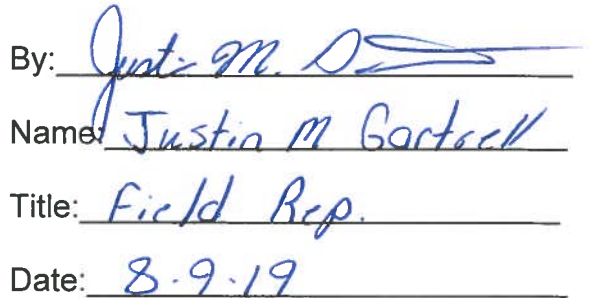 By: Justin M.
Name: Justin M Gartrell
Title: Field Rep.
Date: 8.9.19